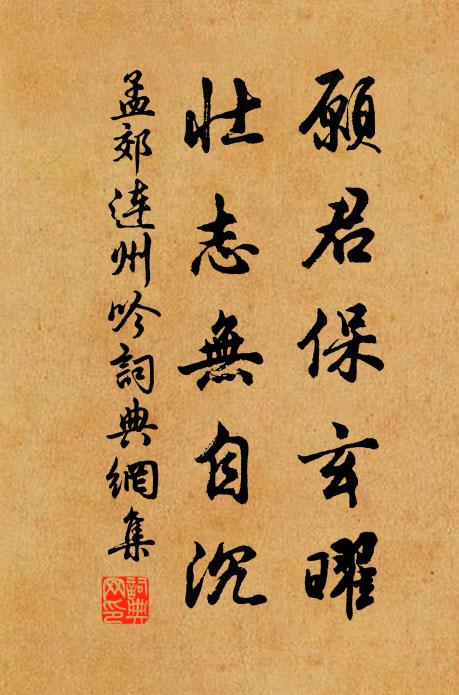 願君保玄曜
壯志無自沉
孟郊连州吟詞典網集
詞典
网印